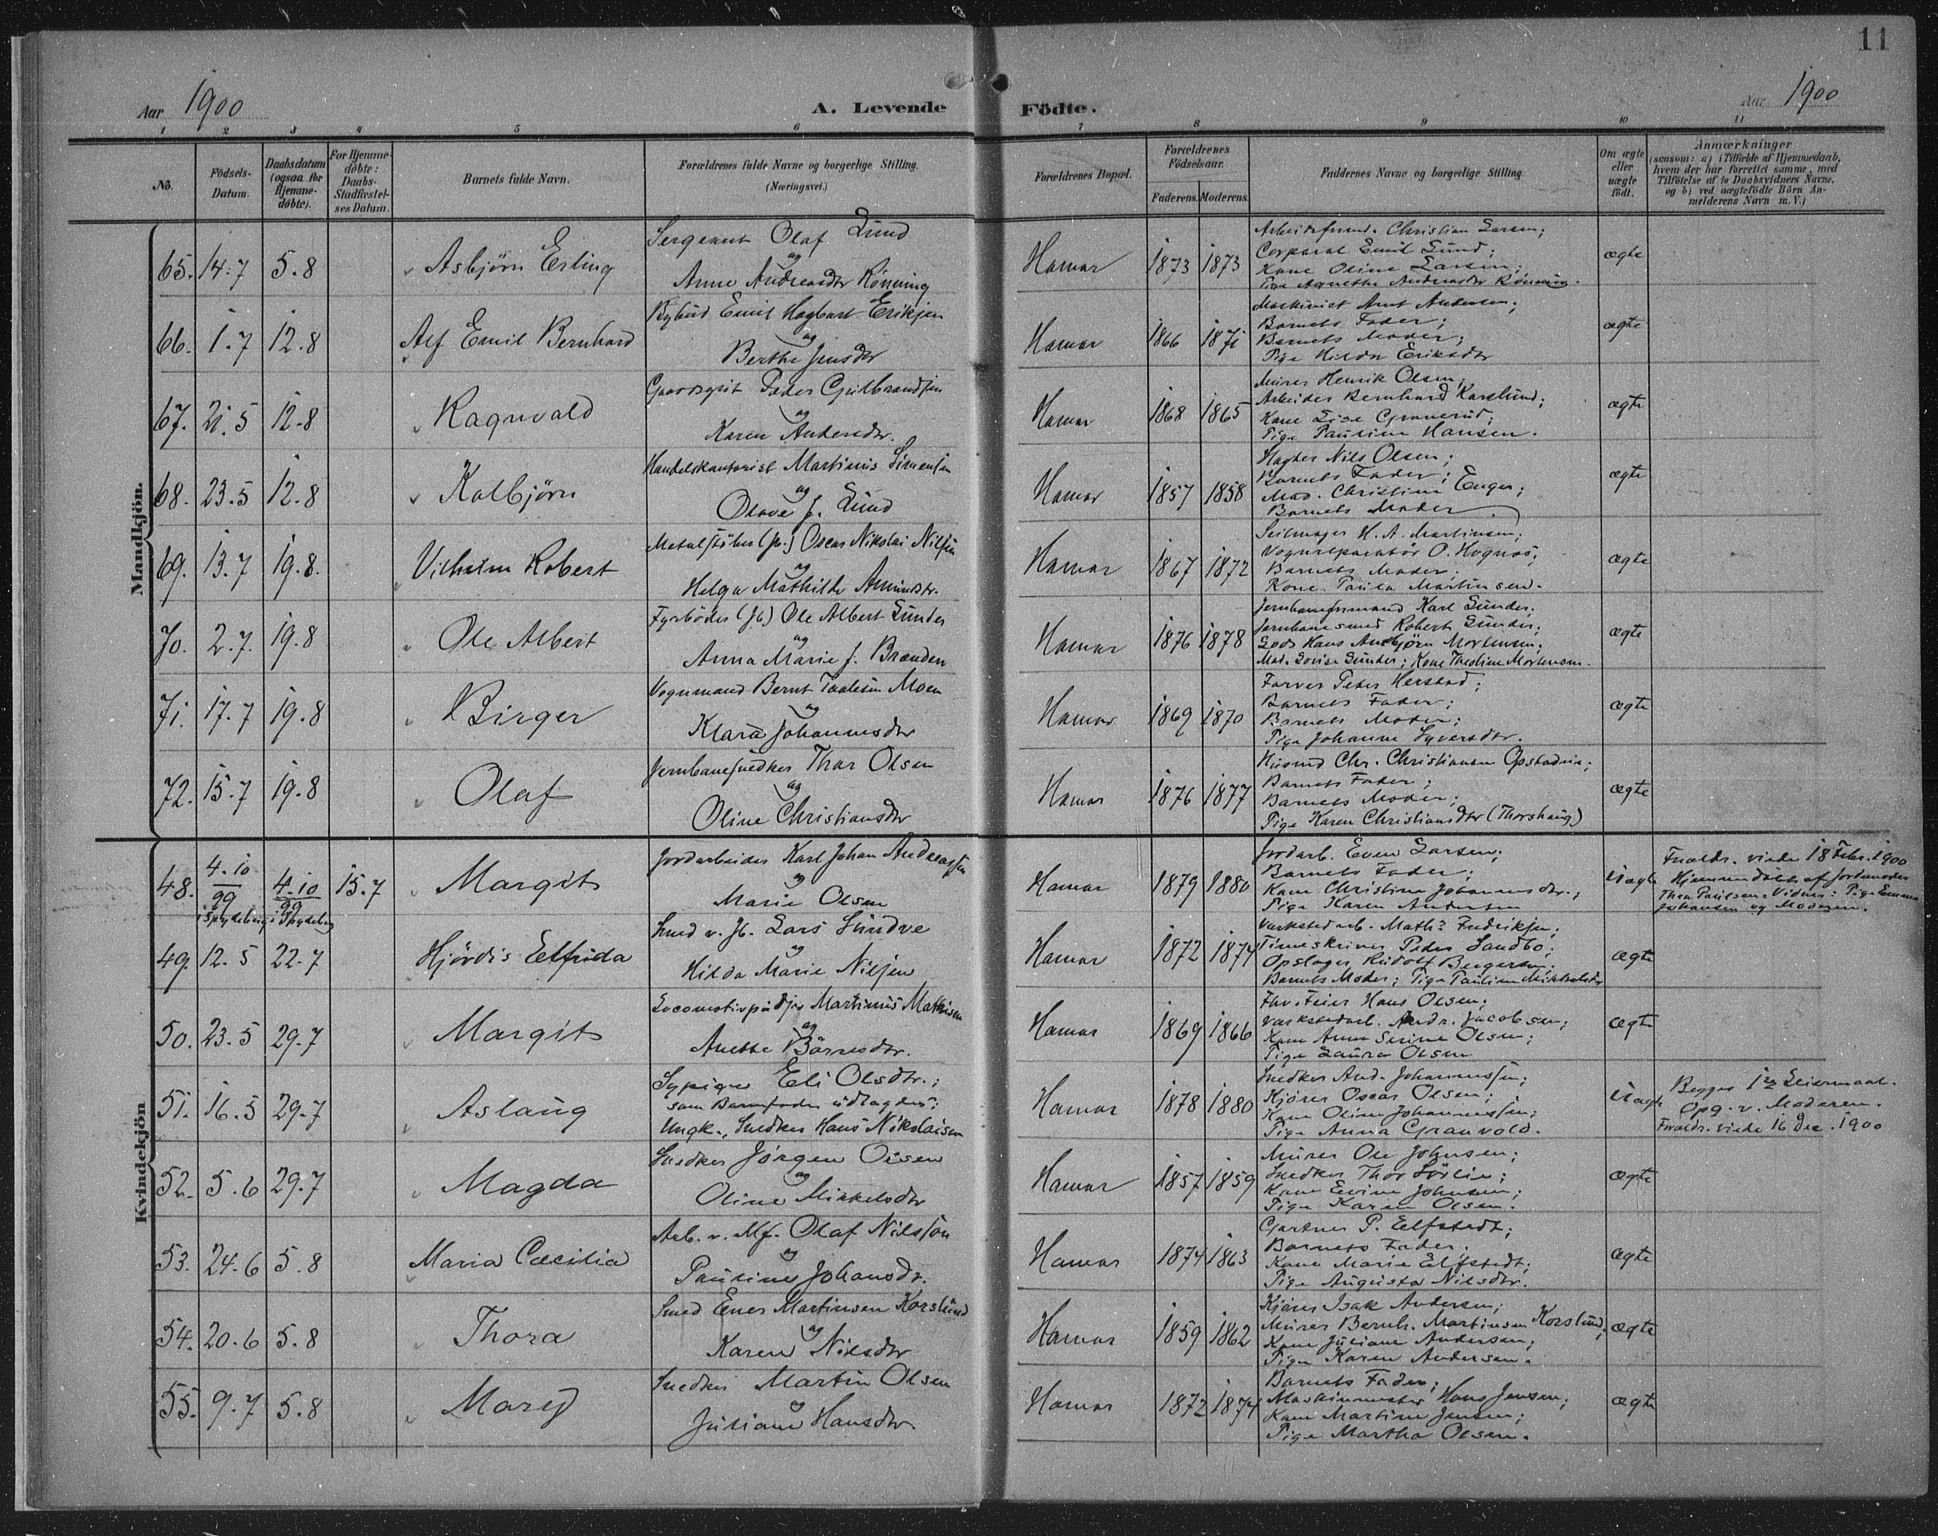 11
Aar 1900
A. Levende Födte.
Aar 1900
1 2 3 4 5 6 7 8 9 10 11
No.
Födsels-Datum.
Daabsdatum (ogsaa for Hjemme-döbte).
For Hjemme-döbte: Daabs-Stadfæstel-ses Datum.
Barnets fulde Navn.
Forældrenes fulde Navne og borgerlige Stilling. (Næringsvei.)
Forældrenes Bopæl.
Forældrenes Födselsaar.
Faderens. Moderens.
Faddernes Navne og borgerlige Stilling.
Om ægte eller uægte født.
Anmærkninger
(saasom: a) i Tilfælde af Hjemmedaab,
hvem der har forrettet samme, med
Tilföielse af to Daabsvidners Navne,
og b) ved uægtefödte Börn An-
melderens Navn m. V.)
Mandkjön.
65. 14.7 5.8 Asbjörn Erling
Sergeant Olaf Lund
og
Anne Andreasdtr Rönning
Hamar 1873 1873
Christian Larsen;
Corporal Emil Lund;
Kone Oline Larsen;
Pige Agnethe Andreasdtr Rönning.
ægte
66. 1.7 12.8 Alf Emil Bernhard
Bybud Emil Hagbart Eriksen
og
Berthe Jensdtr
Hamar 1866 1871
Maskinist Arnt Andersen;
Barnets Fader;
Barnets Moder;
Pige Hilda Eriksdtr
ægte
67. 21.5 12.8 Ragnvald
Peder Gulbrandsen
og
Karen Andersdtr.
Hamar 1868 1865
Murer Henrik Olsen;
Arbeider Bernhard Karslund;
Kone Lise Granerud;
Pige Pauline Hansen.
ægte
68. 23.5 12.8 Kolbjörn
Handelskontorist Martinus Simensen
og
Olave f. Lund
Hamar 1857 1858
Nils Olsen;
Barnets Fader;
Mad. Christine Enger;
Barnets Moder
ægte
69. 13.7 19.8. Vilhelm Robert
Metalstöber (Jb.) Oscar Nikolai Nilsen
og
Helga Mathilde Amundsdtr.
Hamar 1867 1872
Seilmager H. A. Martinsen;
Vognreparatör O. Hognås;
Barnets Moder;
Kone Paula Martinsen.
ægte
70. 2.7. 19.8 Ole Albert
Fyrböder (Jb) Ole Albert Sünder
og
Anna Marie f. Brænden
Hamar 1876 1878
Karl Sünder;
Jernbanesmed Robert Sünder;
Hans Mortensen;
Mad. Lovise Sünder; Kone Theoline Mortensen.
ægte
71. 17.7 19.8 Birger
Vognmand Bernt Moen
og
Klara Johannesdtr
Hamar 1869 1870
Farver Peter Herstad;
Barnets Fader;
Barnets Moder;
Pige Johanne Syversdtr.
ægte
72. 15.7 19.8 Olaf
Jernbanesnedker Thor Olsen
og
Oline Christiansdtr
Hamar 1876 1877
Husmd Chr. Christiansen Opstadeie;
Barnets Fader;
Barnets Moder;
Pige Karen Christiansdtr (Thorshaug)
ægte
Kvindekjön
48. 4.10 99 4.10 99 15.7 Margit
i Spydeberg i Spydeberg
Jordarbeider Karl Johan Andreassen
og
Marie Olsen
Hamar 1879 1880
Jordarb. Even Larsen;
Barnets Fader;
Kone Christine Johannesdtr.;
Pige Karen Andersen
uægte
Foraldr. viede 18 Febr. 1900
Hjemmedöbt af Jordemoder
Thea Paulsen. Vidner: Pige Emma
Johansen og Moderen.
49. 12.5 22.7 Hjördis Elfrida
Smed v. Jb. Lars Sündve
og
Hilda Marie Nilsen
Hamar 1872 1874
Værkstedarb. Maths Fredriksen;
Timeskriver Peder Sandbo;
Opslager Rudolf Birgersen;
Barnets Moder; Pige Pauline Mikkelsdtr
ægte
50. 23.5 29.7 Margit
Locomotivpudser Martinus Mathisen
og
Anette Börresdtr.
Hamar 1869 1866
Feier Hans Olsen;
Værkstedarb. Andr. Jacobsen;
Kone Anne Serine Olsen;
Pige Laura Olsen
ægte
51. 16.5 29.7 Aslaug
Sypige Eli Olsdtr.;
som Barnefader udlagdes:
Ungk., Snedker Hans Nikolaisen
Hamar 1878 1880
Snedker And. Johannessen;
Kjörer Oscar Olsen;
Kone Oline Johannessen;
Pige Anna Granvold.
uægte
Begges 1ste Leiermaal.
Opg. v. Moderen.
Foraldr. viede 16 Dec. 1900
52. 5.6 29.7 Magda
Snedker Jörgen Olsen
og
Oline Mikkelsdtr
Hamar 1857 1859
Murer Ole Johnsen;
Snedker Thor Sörlie;
Kone Evine Johnsen;
Pige Karen Olsen.
ægte
53. 24.6 5.8 Maria Cæcilia
Arb. v. Mf. Olaf Nilsson
og
Pauline Johansdtr.
Hamar 1874 1863
Gartner P. Elfstedt;
Barnets Fader;
Kone Marie Elfstedt;
Pige Augusta Nilsdtr.
ægte
54. 20.6 5.8 Thora
Smed Ener Martinsen Korslund
og
Karen Nilsdtr
Hamar 1859 1862
Kjörer Isak Andersen;
Murer Bernh. Martinsen Korslund;
Kone Juliane Andersen;
Pige Karen Andersen.
ægte
55. 9.7 5.8 Marey
Snedker Martin Olsen
og
Juliane Hansdtr
Hamar 1872 1874
Barnets Fader;
Maskinmester Hans Jensen;
Kone Martine Jensen;
Pige Martha Olsen.
ægte